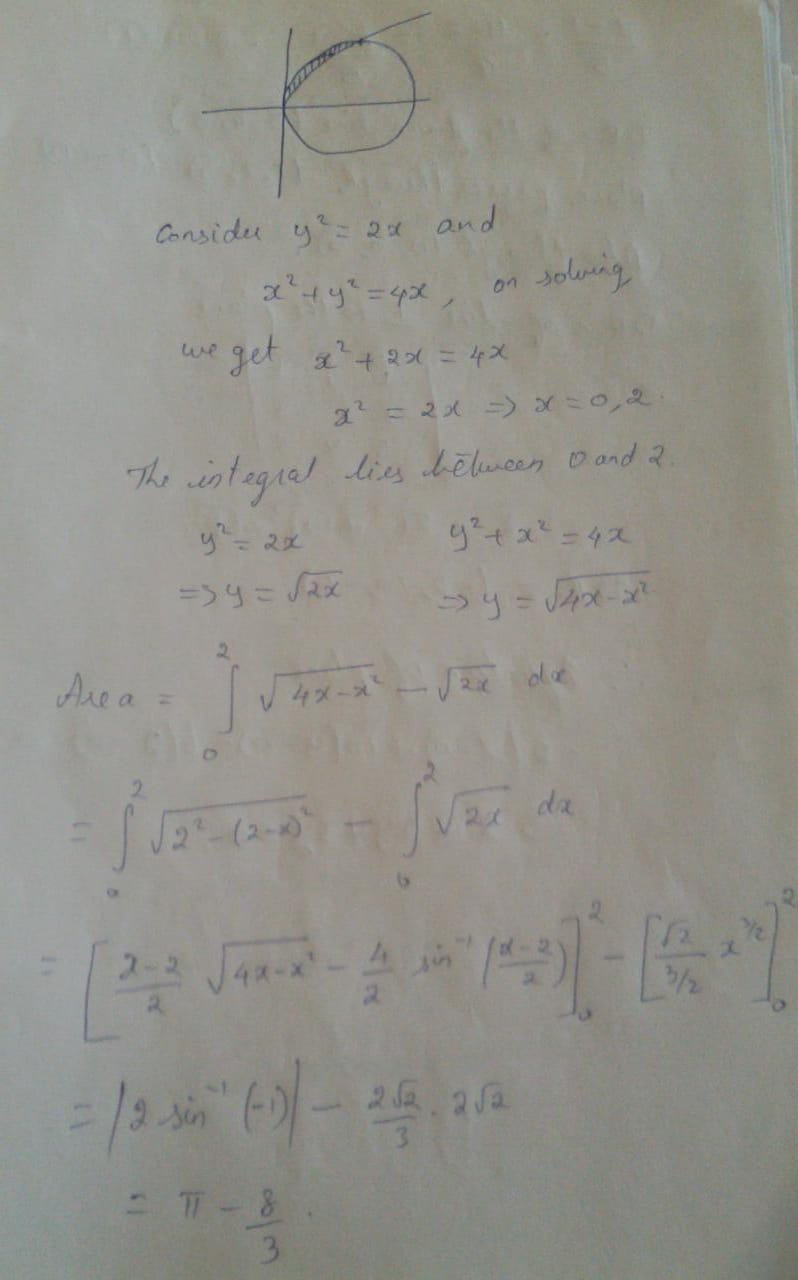 Consider y² = 2x and
x² + y² = 4x, on solving
we get x² + 2x = 4x
x² = 2x => x = 0, 2.
The integral lies between 0 and 2.
y² = 2x y² + x² = 4x
=> y = √(2x) => y = √(4x-x²)
Area = ∫₀² √(4x-x²) - √(2x) dx
= ∫₀² √(2²-(2-x)²) - ∫₀² √(2x) dx
= [ (x-2)/2 √(4x-x²) - 4/2 sin⁻¹ ((x-2)/2) ]₀² - [ √2/(3/2) x^(3/2) ]₀²
= |2 sin⁻¹ (-1)| - 2√2/3 . 2√2
= π - 8/3 .